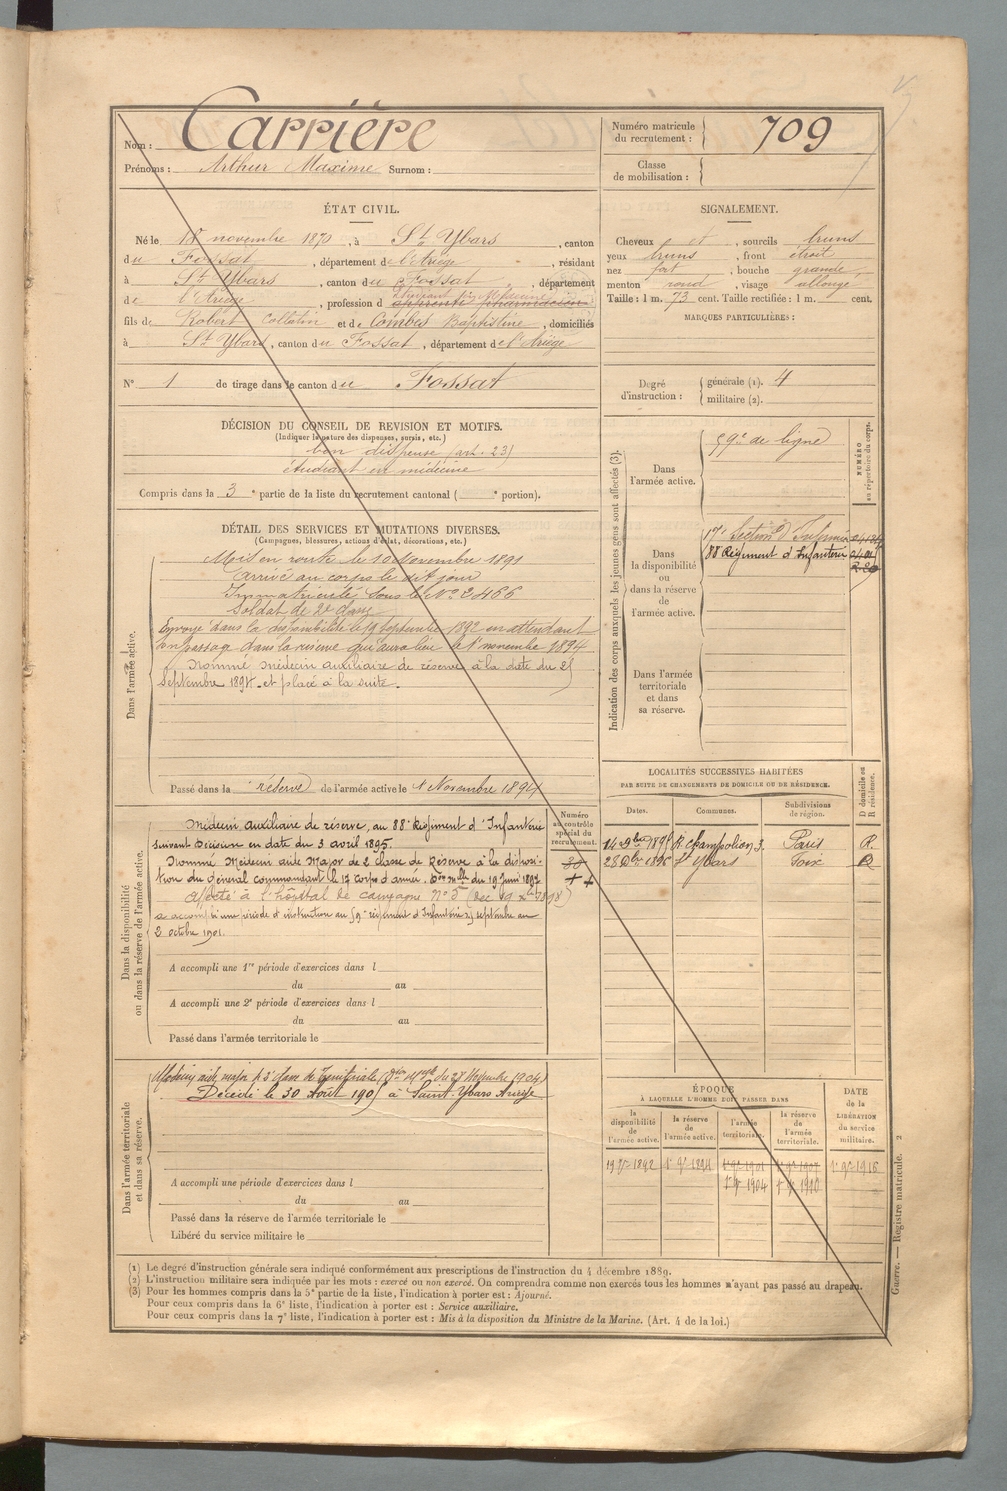 Nom : Carrière
Prénoms : Arthur Maxime Surnom :
Numéro matricule du recrutement : 709
Classe de mobilisation :
ÉTAT CIVIL.
Né le 18 novembre 1870, à St Ybars, canton
du Fossat, département de l'Ariège, résidant
à St Ybars, canton du Fossat, département
de l'Ariège, profession d étudiant en Médecine apprenti pharmacien
fils de Robert Collatin et de Combes Baptistine, domiciliés
à St Ybars, canton du Fossat, département de l'Ariège
N° 1 de tirage dans le canton du Fossat
SIGNALEMENT.
Cheveux et, sourcils bruns
yeux bruns, front étroit
nez fort, bouche grande,
menton rond, visage allongé
Taille : 1 m. 73 cent. Taille rectifiée : 1 m. cent.
MARQUES PARTICULIÈRES :
Degré d'instruction : générale (1). 4
militaire (2).
DÉCISION DU CONSEIL DE REVISION ET MOTIFS.
(Indiquer la nature des dispenses, sursis, etc.)
bon dispensé (art. 23)
étudiant en médecine
Compris dans la 3e partie de la liste du recrutement cantonal ( e portion).
DÉTAIL DES SERVICES ET MUTATIONS DIVERSES.
(Campagnes, blessures, actions d'éclat, décorations, etc.)
Dans l'armée active.
Mis en route le 10 Novembre 1891
arrivé au corps le dit jour
Immatriculé sous le N° 2466
Soldat de 2e classe
Envoyé dans la disponibilité le 19 septembre 1892 en attendant
son passage dans la réserve qui aura lieu le 1 novembre 1894
Nommé médecin auxiliaire de réserve à la date du 25
Septembre 1894. et placé à la suite.
Passé dans la réserve de l'armée active le 1 Novembre 1894
Indication des corps auxquels les jeunes gens sont affectés (3).
NUMÉRO au répertoire du corps.
Dans l'armée active.
59e de ligne
Dans la disponibilité ou dans la réserve de l'armée active.
17e Section d'Infirmiers
88 Régiment d'Infanterie
Dans l'armée territoriale et dans sa réserve.
LOCALITÉS SUCCESSIVES HABITÉES
PAR SUITE DE CHANGEMENTS DE DOMICILE OU DE RÉSIDENCE.
Dates. Communes. Subdivisions de région. D domicile ou R résidence.
R. Champolion 3. Paris R.
St Ybars Foix
Dans la disponibilité ou dans la réserve de l'armée active.
Numéro au contrôle spécial du recrutement.
Médecin auxiliaire de réserve, au 88e Régiment d'Infanterie
suivant Décision en date du 3 avril 1895.
Nommé Médecin aide Major de 2 classe de Réserve à la disposi-
tion du Général commandant le 17 corps d'armée. Don mlle du 19 Juin 1897
affecté à l'hôpital de campagne n° 5
a accompli une période d'instruction au 59e régiment d'Infanterie septembre au
2 octobre 1901.
A accompli une 1re période d'exercices dans l
du au
A accompli une 2e période d'exercices dans l
du au
Passé dans l'armée territoriale le
Dans l'armée territoriale et dans sa réserve.
Médecin aide major de 2e classe de Territoriale Novembre 1904
Décédé le 30 Août 1905 à Saint-Ybars Ariège
A accompli une période d'exercices dans l
du au
Passé dans la réserve de l'armée territoriale le
Libéré du service militaire le
ÉPOQUE
À LAQUELLE L'HOMME DOIT PASSER DANS
la disponibilité de l'armée active. la réserve de l'armée active. l'armée territoriale. la réserve de l'armée territoriale. DATE de la LIBÉRATION du service militaire.
19 7re 1892 1r 9re 1894 1r 9re 1901 1r 9re 1907 1r 9re 1916
1r 9re 1904 1r 9re 1910
(1) Le degré d'instruction générale sera indiqué conformément aux prescriptions de l'instruction du 4 décembre 1889.
(2) L'instruction militaire sera indiquée par les mots : exercé ou non exercé. On comprendra comme non exercés tous les hommes n'ayant pas passé au drapeau.
(3) Pour les hommes compris dans la 5e partie de la liste, l'indication à porter est : Ajourné.
Pour ceux compris dans la 6e liste, l'indication à porter est : Service auxiliaire.
Pour ceux compris dans la 7e liste, l'indication à porter est : Mis à la disposition du Ministre de la Marine. (Art. 4 de la loi.)
Guerre. — Registre matricule. 2